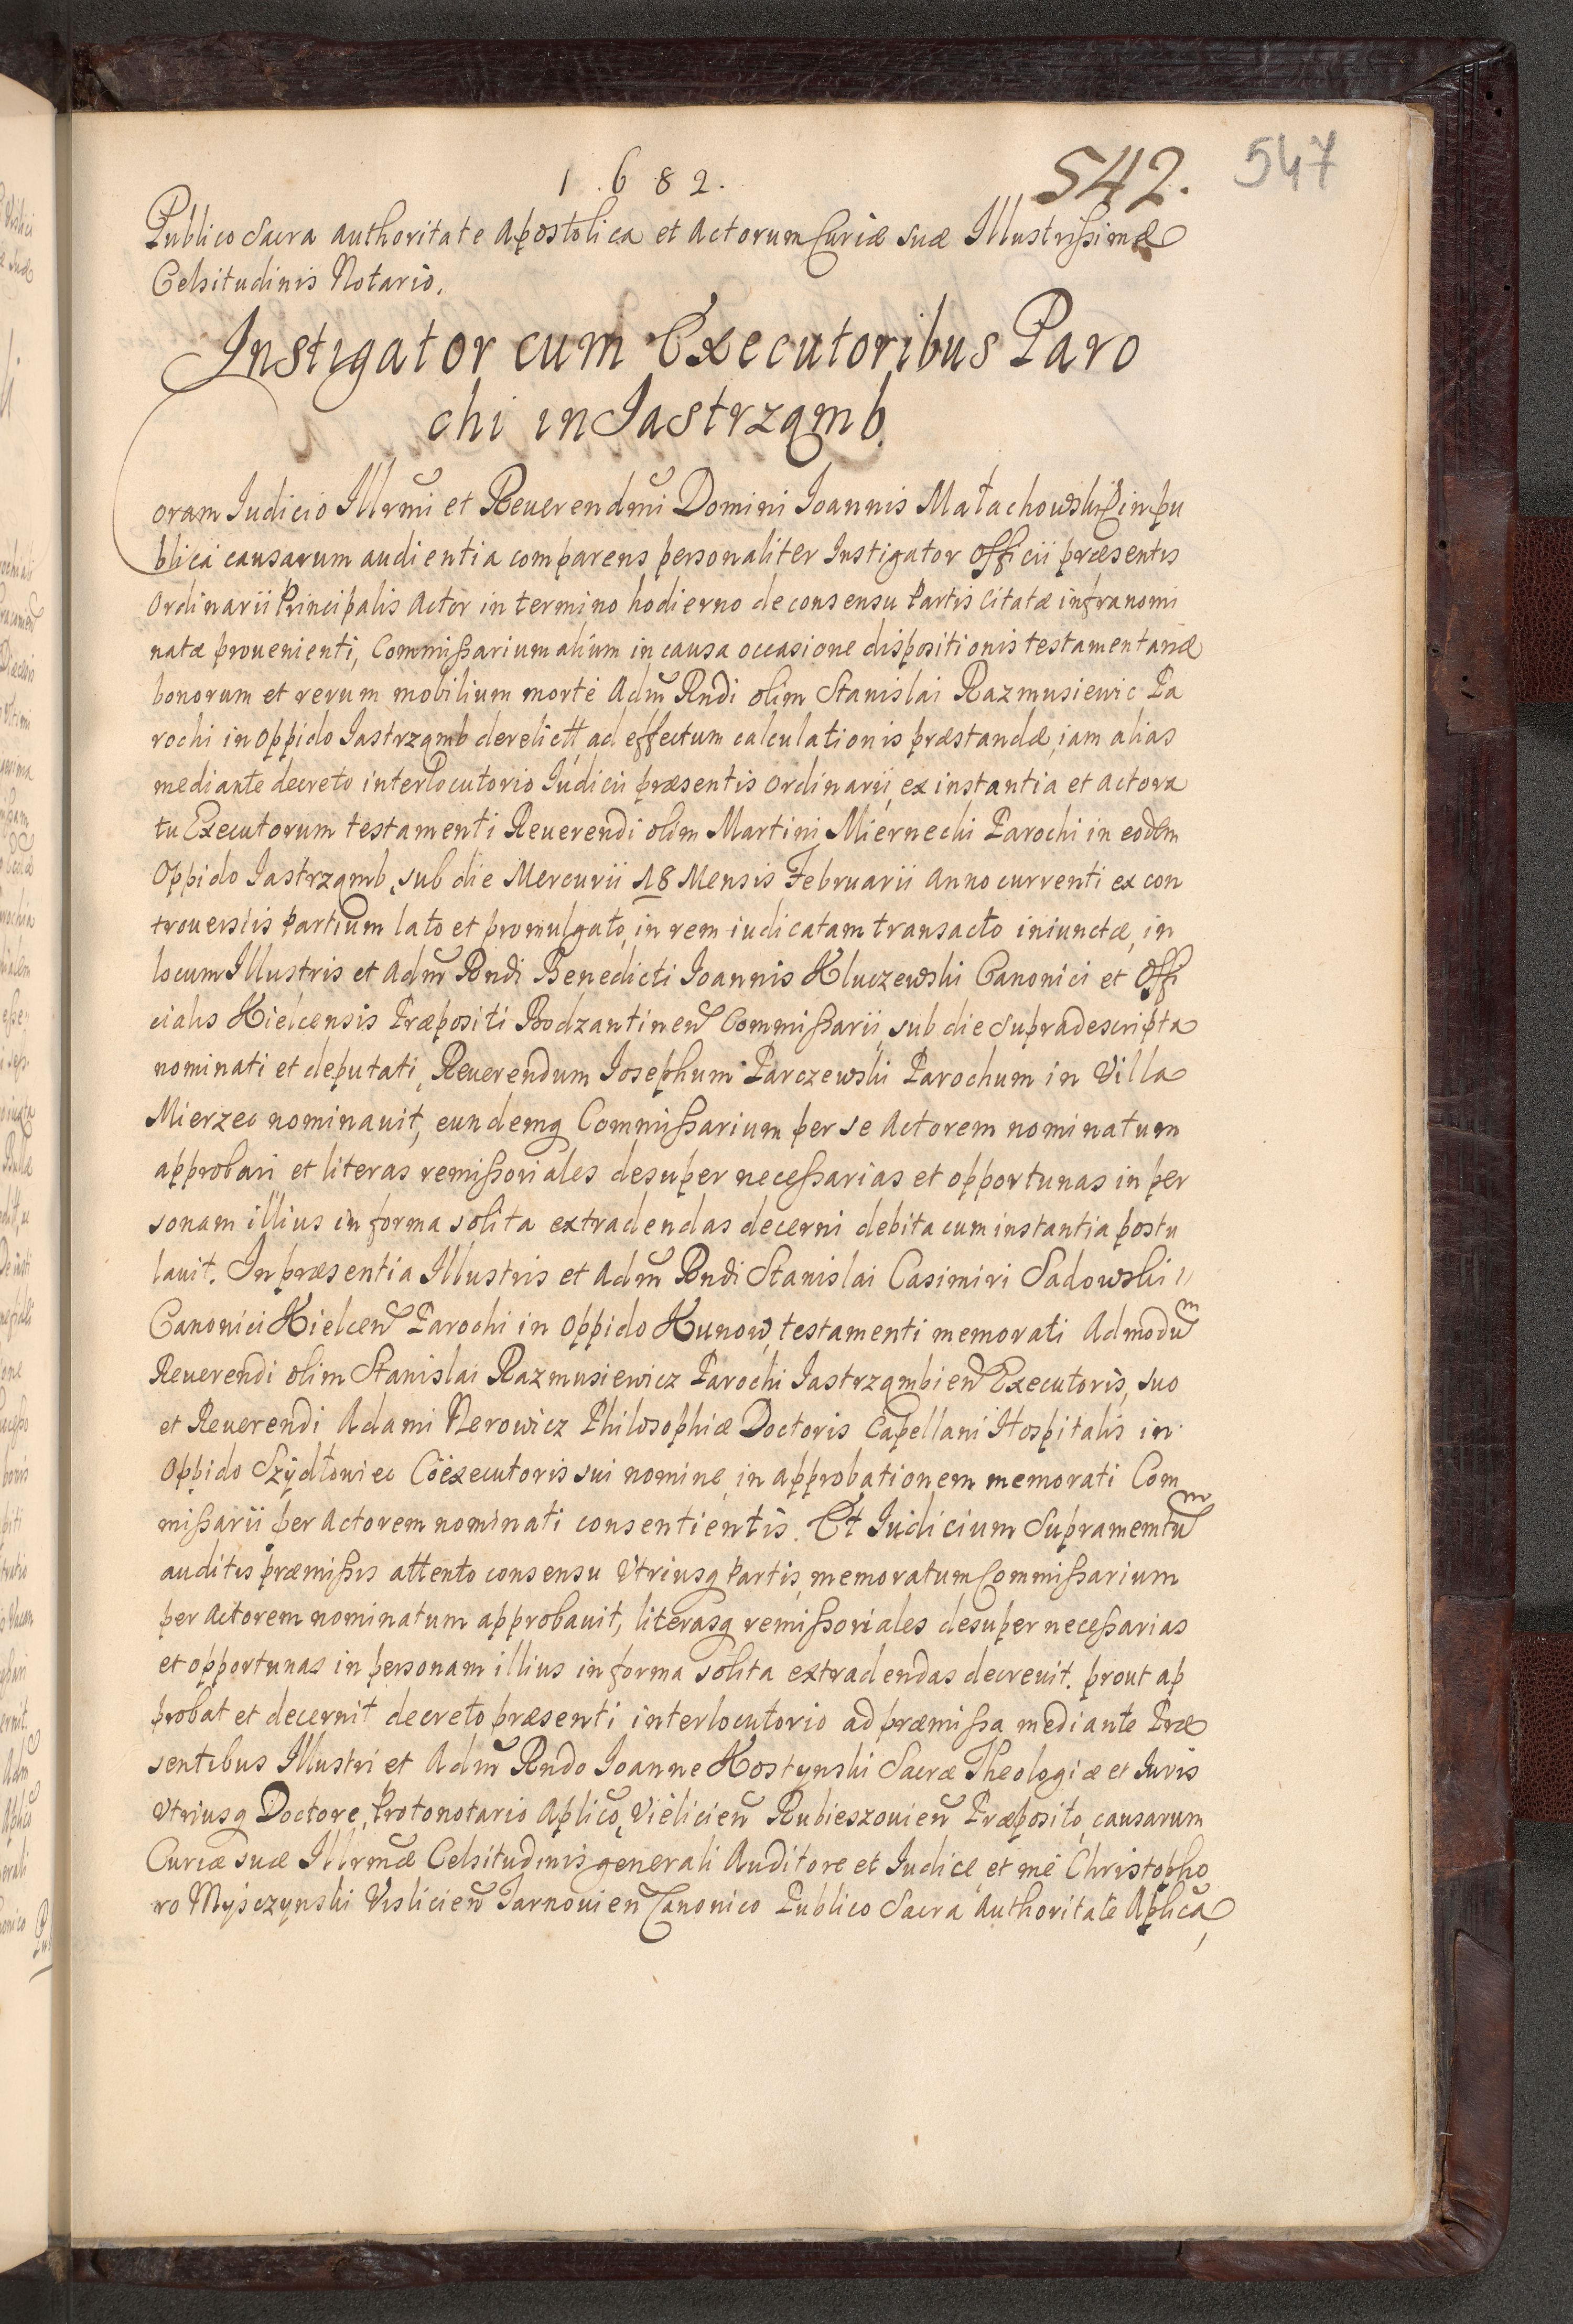 1682.
542.
547
Publico Sacra authoritate Apostolica et Actorum Curiæ suæ Illustrissimæ
Celsitudinis Notario.
Instigator cum Executoribus Paro
chi in Jastrząmb
Coram Iudicio Illrm̃i et Reuerendm̃i Domini Ioannis Małachowski Ep̃i in pu
blica causarum audientia comparens personaliter Instigator Officii præsentis
Ordinarii Principalis Actor in termino hodierno de consensu Partis Citatæ infranomi
natæ prouenienti, Commissarium alium in causa occasione dispositionis testamentariæ
bonorum et rerum mobilium morte Adm̃ Rndi olim Stanislai Razmusiewic Pa
rochi in Oppido Iastrząmb derelictt, ad effectum calculationis præstandæ, iam alias
mediante decreto interlocutorio Iudicii præsentis Ordinarii, ex instantia et Actora
tu Executorum testamenti Reuerendi olim Martini Miernechi Parochi in eodem
Oppido Iastrząmb, sub die Mercurii 18 Mensis Februarii Anno currenti ex con
trouersiis Partium lato et promulgato, in rem iudicatam transacto iniunctæ, in
locum Illustris et Adm̃ Rndi Benedicti Ioannis Kluczewski Canonici et Offi
cialis Kielcensis Præpositi Bodzantineñ Commissarii, sub die Supradescripta
nominati et deputati, Reuerendum Iosephum Parczewski Parochum in Villa
Mierzec nominauit, eundemq Commissarium per se Actorem nominatum
approbari et literas remissoriales desuper necessarias et opportunas in per
sonam illius in forma solita extradendas decerni debita cum instantia postu
lauit. In præsentia Illustris et Adm̃ Rndi Stanislai Casimiri Sadowski
Canonici Kielceñ Parochi in Oppido Kunow, testamenti memorati Admodũm
Reuerendi olim Stanislai Razmusiewicz Parochi Iastrząmbieñ Executoris, suo
et Reuerendi Adami Nerowicz Philosophiæ Doctoris Capellani Hospitalis in
Oppido Szydłowiec Coexecutoris sui nomine, in approbationem memorati Com
missarii per Actorem nominati consentientis. Et Iudicium Supramemtũm
auditis præmissis attento consensu Vtriusq Partis, memoratum Commissarium
per Actorem nominatum approbauit, literasq remissoriales desuper necessarias
et opportunas in personam illius in forma solita extradendas decreuit. prout ap
probat et decernit decreto præsenti interlocutorio ad præmissa mediante Præ
sentibus Illustri et Adm̃ Rndo Ioanne Kostynski Sacræ Theologiæ et Iuris
Vtriusq Doctore, Protonotario Aplico, Vielicieñ Rubieszouieñ Præposito, causarum
Curiæ suæ Illrmæ Celsitudinis generali Auditore et Iudice, et me Christopho
ro Myśczynski Visliceñ Tarnouieñ Canonico Publico Sacra Authoritate Aplica,